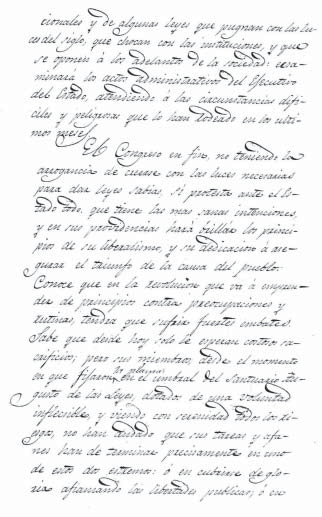 cionales y de algunas leyes que pugnan con las lu-
ces del siglo, que chocan con las instituciones, y que
se oponen á los adelantos de la sociedad: exa-
minará los actos administrativos del Ejecutivo
del Estado, atendiendo á las circunstancias difi-
ciles y peligrosas que lo han rodeado en los ulti-
mos meses.
El Congreso en fin, no teniendo la
arrogancia de creerse con las luces necesarias
para dar leyes sabias, si protesta ante el Es-
tado todo, que tiene las mas sanas intenciones,
y en sus providencias hará brillar los princi-
pios de su liberalismo, y su dedicacion á ase-
gurar el triunfo de la causa del pueblo.
Conoce que en la revolucion que va á empren-
der de principios contra preocupaciones y
rutinas, tendra que sufrir fuertes embates.
Sabe que desde hoy solo le esperan costosos sa-
crificios; pero sus miembros, desde el momento
en que fijaron las plantas en el umbral del santuario au-
gusto de las Leyes, dotados de una voluntad
inflecsible, y viendo con serenidad todos los ries-
gos, no han dudado que sus tareas y afa-
nes han de terminar precisamente en uno
de estos dos estremos: ó en cubrirse de glo-
ria afianzando las libertades publicas; ó en